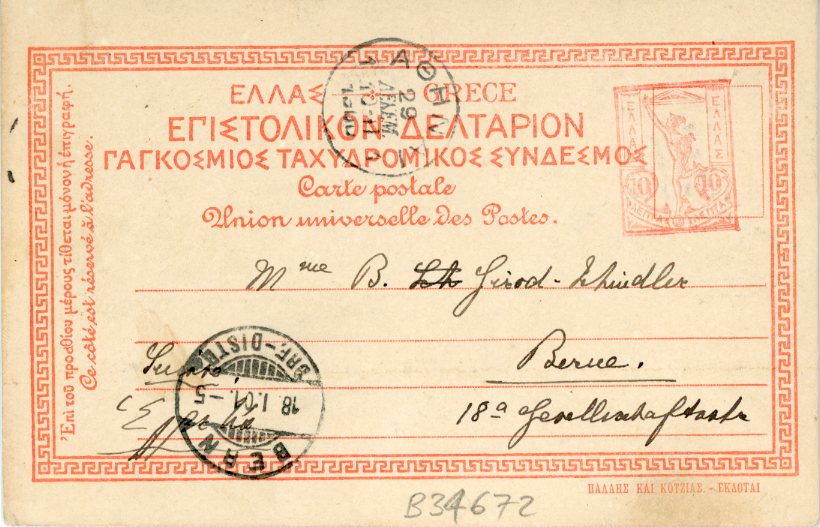 ΕΛΛΑΣ GRECE
ΕΠΙΣΤΟΛΙΚΟΝ ΔΕΛΤΑΡΙΟΝ
ΠΑΓΚΟΣΜΙΟΣ ΤΑΧΥΔΡΟΜΙΚΟΣ ΣΥΝΔΕΣΜΟΣ
Carte postale
Union universelle des Postes.
Ἐπὶ τοῦ προσθίου μέρους τίθεται μόνον ἡ ἐπιγραφή.
Ce côté est réservé à l'adresse.
ΑΘΗΝ
29
ΔΕΚΕΜ
ΕΛΛΑΣ
ΕΛΛΑΣ
10 10
ΛΕΠΤΑ ΛΕΠΤΑ
Mme B. Girod-Schindler
Berne.
18a Gesellschaftsstr
Suisse
BRF-DISTR
18 I.01.-5
BERN
ΠΑΛΛΗΣ ΚΑΙ ΚΟΤΖΙΑΣ.-ΕΚΔΟΤΑΙ
B34672